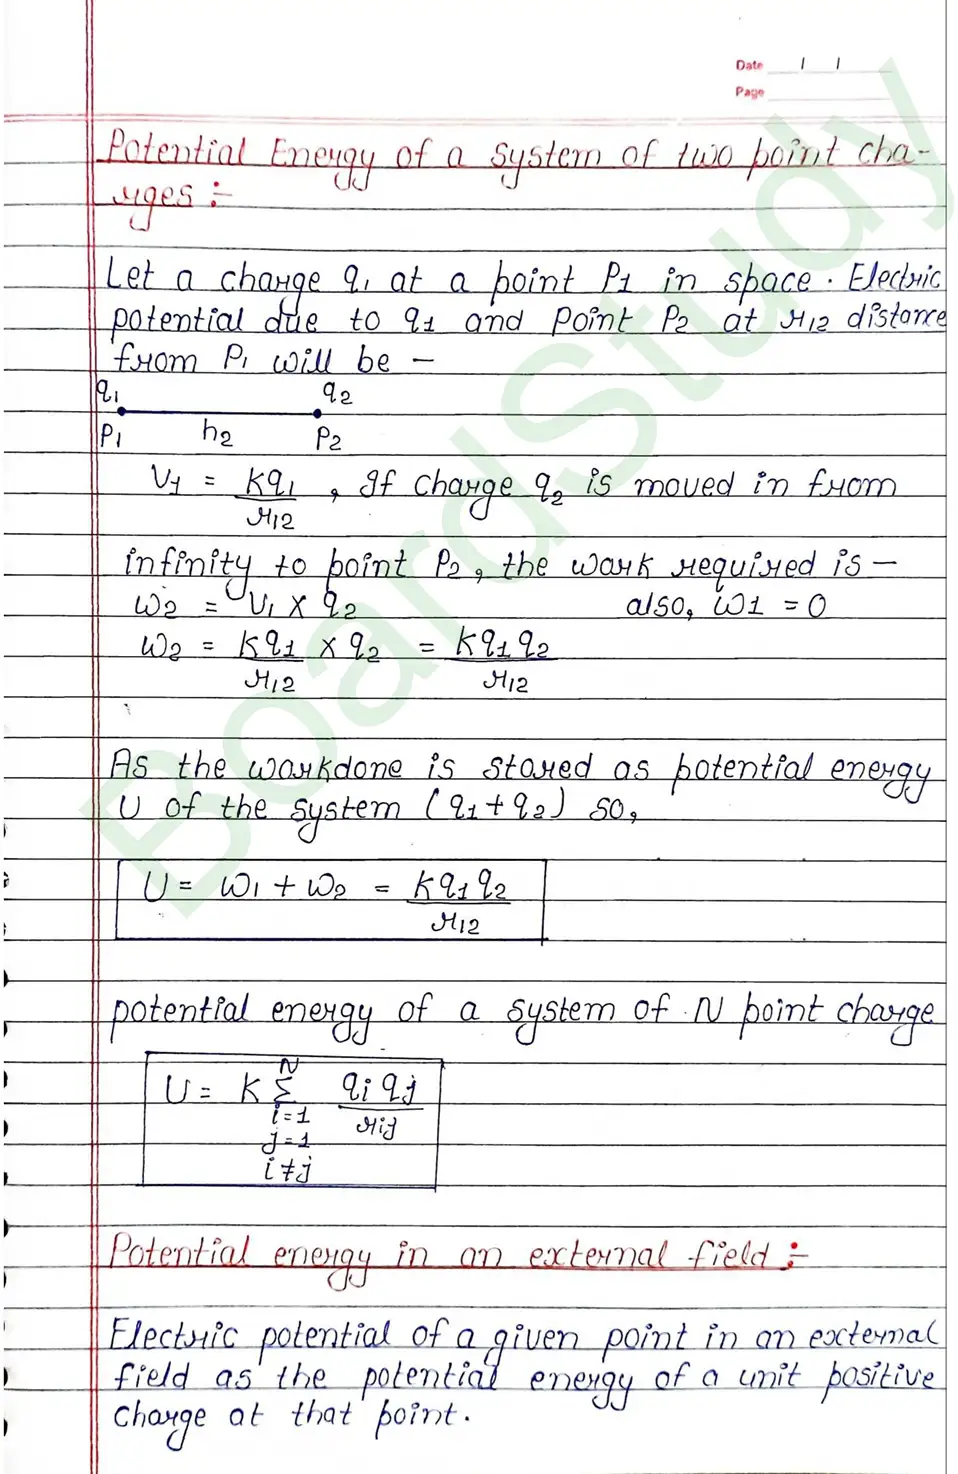 Date / /
Page
Potential Energy of a system of two point cha-
rges :-
Let a charge q₁ at a point P1 in space. Electric
potential due to q1 and point P2 at r12 distance
from P₁ will be -
q₁ q2
P₁ h2 P2
V1 = Kq₁/r12 , If charge q2 is moved in from
infinity to point P2, the work required is -
W2 = V₁ × q2 also, W1 = 0
W2 = Kq1/r12 × q2 = Kq1q2/r12
As the workdone is stored as potential energy
U of the system (q1+q2) so,
U = W1 + W2 = Kq1q2/r12
potential energy of a system of N point charge
U = K Σ qi qj/rij
N
i=1
j=1
i≠j
Potential energy in an external field :-
Electric potential of a given point in an external
field as the potential energy of a unit positive
charge at that point.
BoardStudy